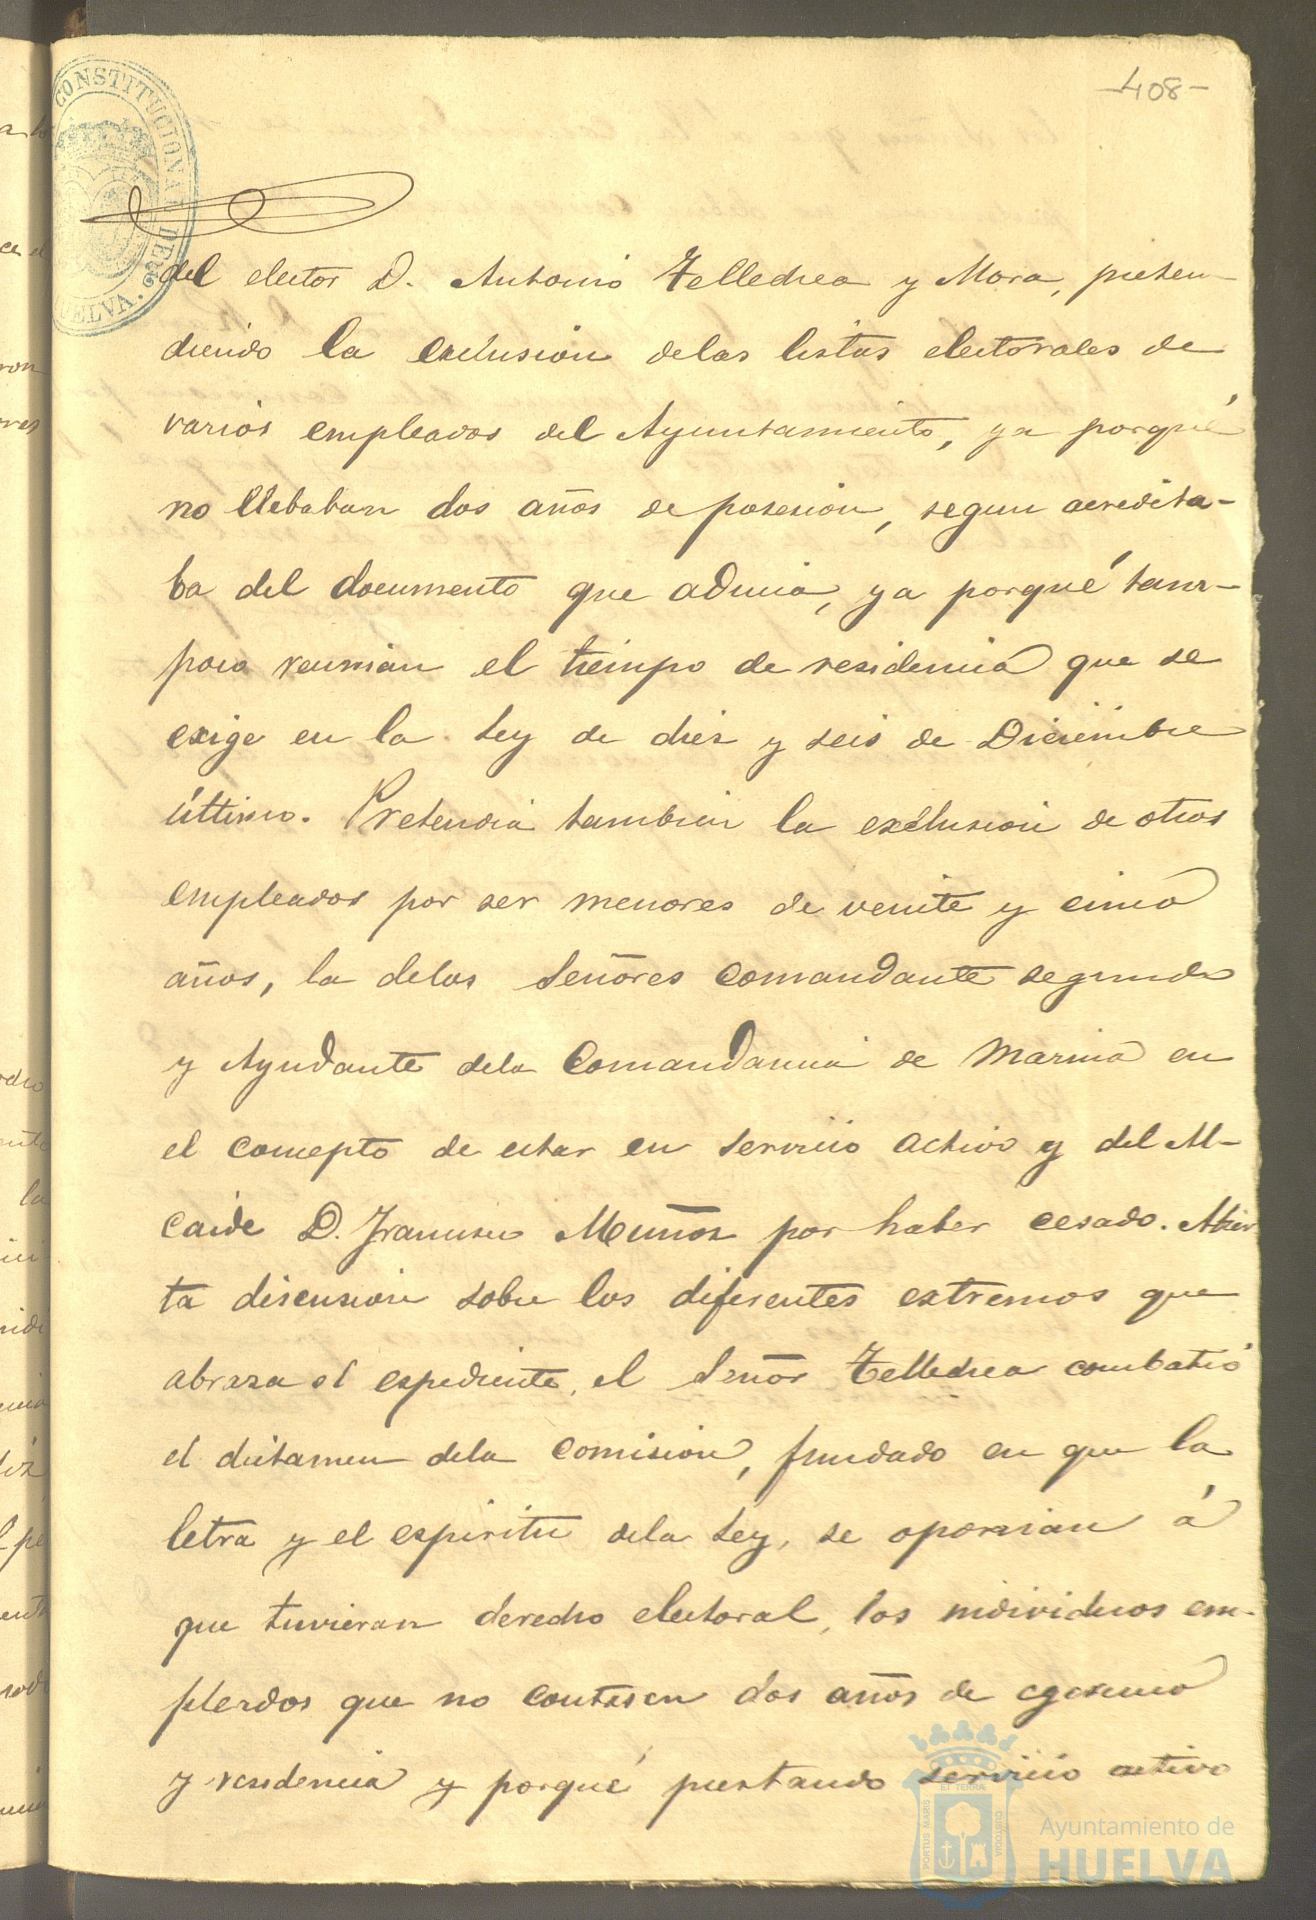 -408-
CONSTITUCIONAL DE HUELVA.
del elector D. Antonio Telledrea y Mora, preten-
diendo la exclusion delas listas electorales de
varios empleados del Ayuntamiento, ya porqué
no llebaban dos años de posesion, segun acredita-
ba del documento que aducia, ya porqué tam-
poco reunian el tiempo de residencia que se
exige en la Ley de diez y seis de Diciembre
último. Pretendia tambien la exclusion de otros
empleados por ser menores de veinte y cinco
años, la delos Señores Comandante segundo
y Ayudante dela Comandancia de Marina en
el concepto de estar en servicio activo y del Al-
caide D. Francisco Muñoz por haber cesado. Abier
ta discusion sobre los diferentes extremos que
abraza el espediente, el Señor Telledrea combatió
el dictamen dela Comision, fundado en que la
letra y el espiritu dela Ley, se oponian á
que tuvieran derecho electoral, los individuos em-
pleados que no contasen dos años de egercicio
y residencia y porqué prestando servicio activo
PORTUS MARIS ET TERRAE CUSTODIA
Ayuntamiento de
HUELVA